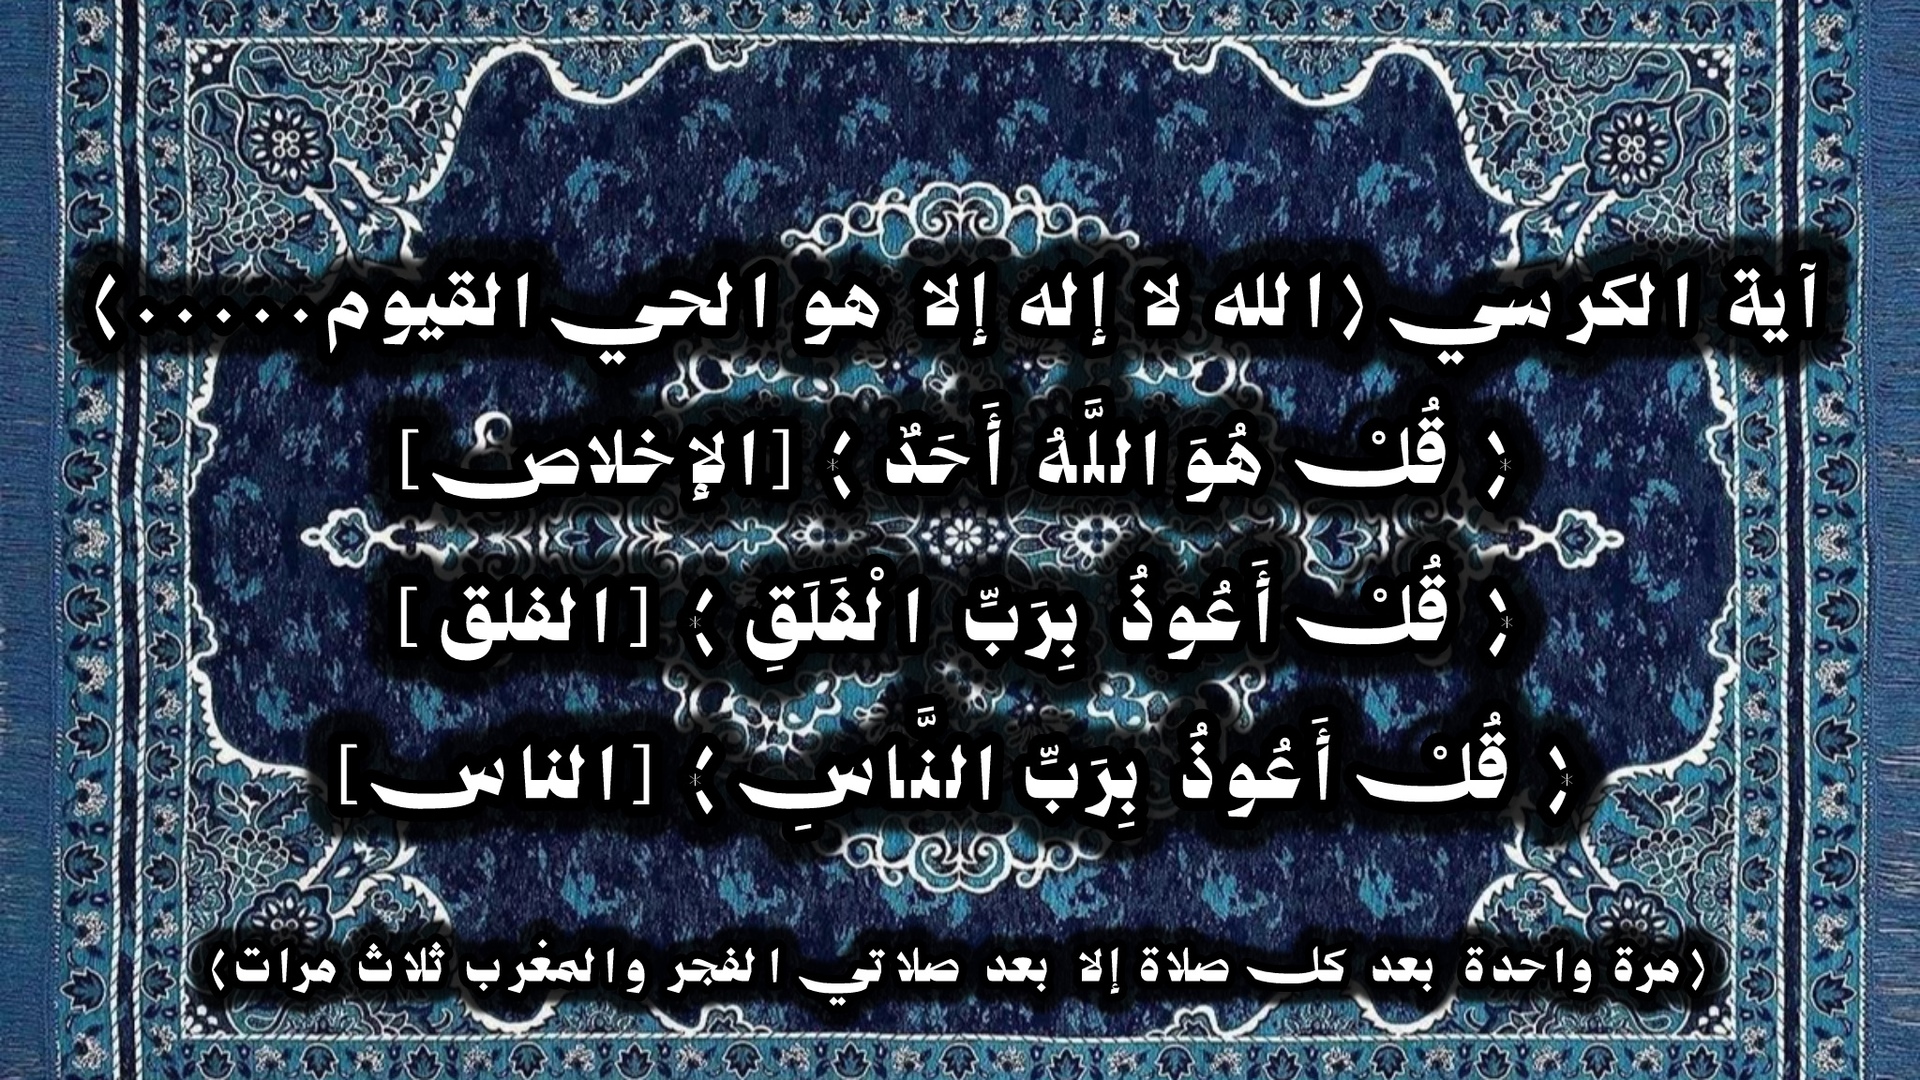 آية الكرسي (الله لا إله إلا هو الحي القيوم.....)
﴿ قُلْ هُوَ اللَّهُ أَحَدٌ ﴾ [الإخلاص]
﴿ قُلْ أَعُوذُ بِرَبِّ الْفَلَقِ ﴾ [الفلق]
﴿ قُلْ أَعُوذُ بِرَبِّ النَّاسِ ﴾ [الناس]
(مرة واحدة بعد كل صلاة إلا بعد صلاتي الفجر والمغرب ثلاث مرات)